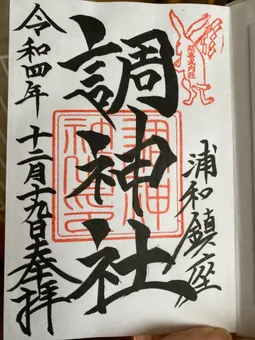 延喜式内社
浦和鎮座
調神社
令和四年 十二月十九日奉拝